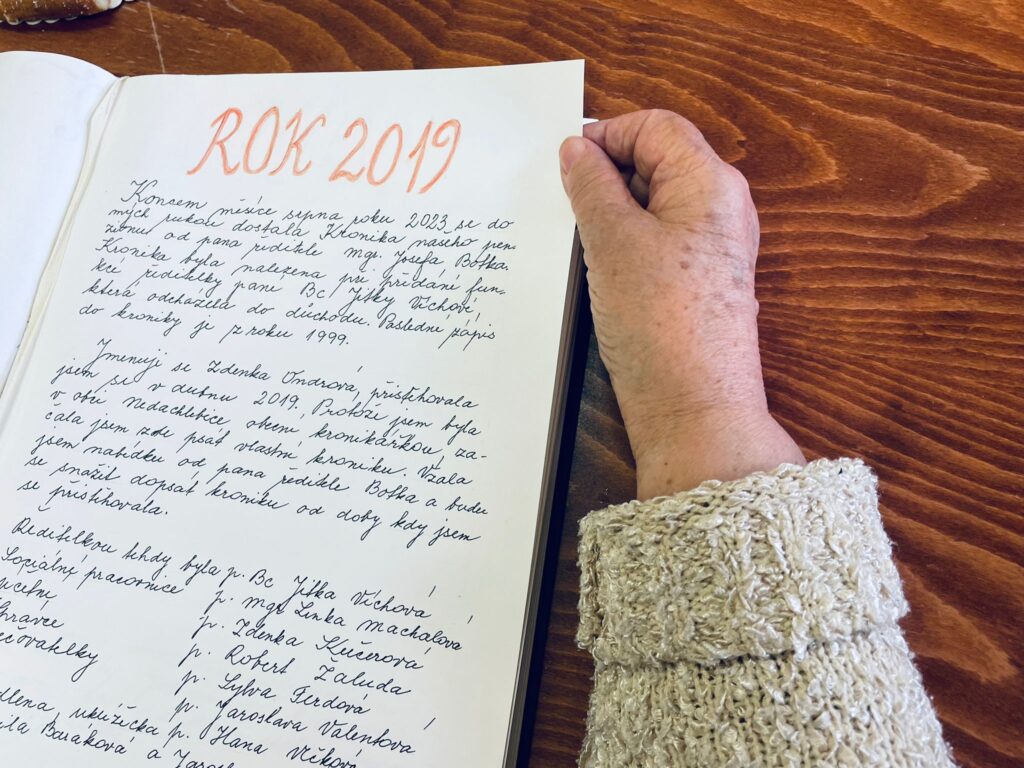 ROK 2019
Koncem měsíce srpna roku 2023 se do
mých rukou dostala Kronika našeho pen-
zionu od pana ředitele mgr. Josefa Botka.
Kronika byla nalezena při přidání fun-
kce ředitelky paní Bc Jitky Víchové,
která odcházela do důchodu. Poslední zápis
do kroniky je z roku 1999.
Jmenuji se Zdenka Ondrová, přistěhovala
jsem se v dubnu 2019. Protože jsem byla
v obci Nedachlebice, obecní kronikářkou, za-
čala jsem zde psát vlastní kroniku. Vzala
jsem nabídku od pana ředitele Botka a budu
se snažit dopsat kroniku od doby kdy jsem
se přistěhovala.
Ředitelkou tehdy byla p. Bc Jitka Víchová
Sociální pracovnice p. mgr. Lenka Machalová
p. Zdenka Kučerová
p. Robert Žaluda
p. Sylva Ferdová
p. Jaroslava Valentová
p. Hana Vlčková
Baraková a